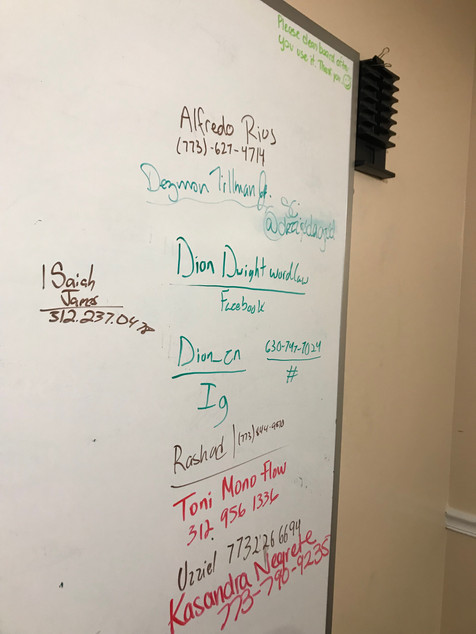 Please clean board after
you use it. Thank you.
Alfredo Rios
(773)-627-4714
Dezmon Tillman Jr.
Dion Dwight wordlaw
Facebook
Isaiah
James
312.237.0478
Dion_cn
630-797-7024
Ig
#
Rashad (773)844-9870
Toni Mono flow
312 956 1336
Uzziel 7732266694
Kasandra Negrete
773-790-9235